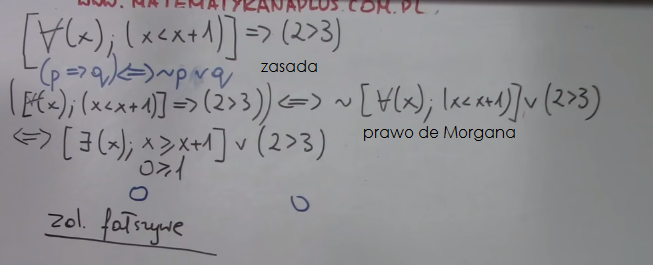 WWW.MATEMATYKANAPLUS.COM.PL
[∀(x); (x<x+1)] => (2>3)
(p=>q)<=>~p∨q zasada
([∀(x); (x<x+1)] => (2>3)) <=> ~[∀(x); (x<x+1)]∨(2>3)
<=> [∃(x); x⩾x+1] ∨ (2>3) prawo de Morgana
0⩾1
0 0
zd. fałszywe